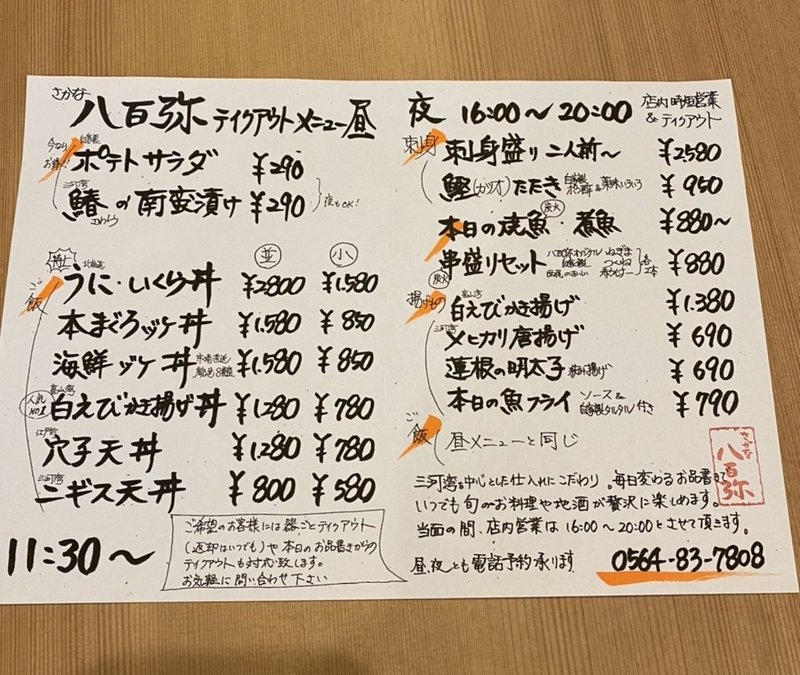 さかな
八百弥 テイクアウトメニュー 昼
今なら お得!!
自家製
ポテトサラダ ¥290
三河湾
鰆の南蛮漬け ¥290
さわら
夜もOK!
ご飯
並 小
特上 北海道
うに・いくら丼 ¥2800 ¥1,580
本まぐろヅケ丼 ¥1,580 ¥850
海鮮ヅケ丼 市場直送 ¥1,580 ¥850
人気 NO1 富山湾
白えびかき揚げ丼 ¥1280 ¥780
江戸前
穴子天丼 ¥1280 ¥780
三河湾
ニギス天丼 ¥800 ¥580
11:30〜
ご希望のお客様には器ごとテイクアウト
(返却はいつでも)や本日のお品書きからの
テイクアウトも対応致します。
お気軽に問い合わせ下さい
夜 16:00〜20:00 店内時短営業
&テイクアウト
刺身
刺身盛り二人前〜 ¥2580
鰹(カツオ)たたき 自家製 ポン酢&薬味いろいろ ¥950
炭火
本日の焼魚・煮魚 ¥880〜
炭火
串盛りセット 八百弥オリジナル 自家製 ねぎま つくね 各2本 ¥880
揚げもの
富山湾
白えびかき揚げ ¥1,380
三河湾
メヒカリ唐揚げ ¥690
蓮根の明太子挟み揚げ ¥690
本日の魚フライ ソース& 自家製タルタル付き ¥790
ご飯
昼メニューと同じ
さかな
八百弥
三河湾を中心とした仕入れにこだわり。毎日変わるお品書きで
いつでも旬のお料理や地酒が贅沢に楽しめます。
当面の間、店内営業は16:00〜20:00とさせて頂きます。
昼、夜とも電話予約承ります 0564-83-7808